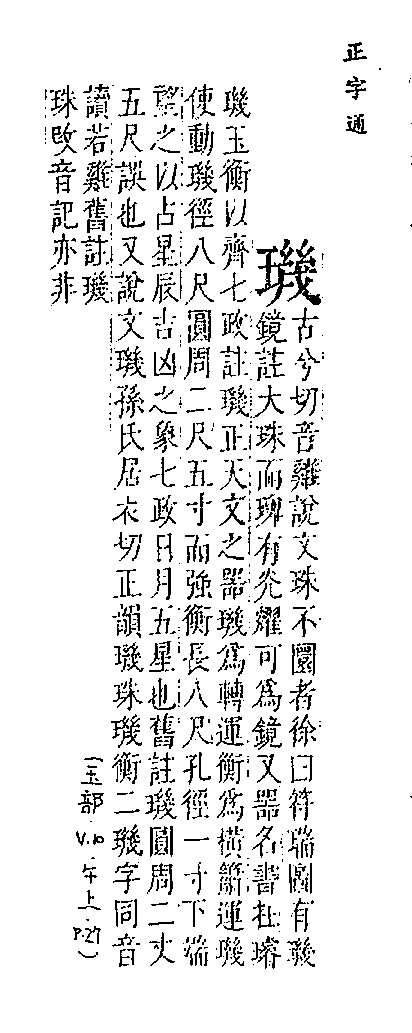 正字通
璣
古兮切音雞說文珠不圜者徐曰符瑞圖有璣
鏡註大珠而琕有光耀可爲鏡又器名書在璿
璣玉衡以齊七政註璣正天文之器璣爲轉運衡爲橫簫運璣
使動璣徑八尺圓周二尺五寸而強衡長八尺孔徑一寸下端
望之以占星辰吉凶之象七政日月五星也舊註璣圓周二丈
五尺誤也又說文璣孫氏居衣切正韻璣珠璣衡二璣字同音
讀若雞舊註璣
珠改音記亦非
(玉部 V.10 午上 P.27)